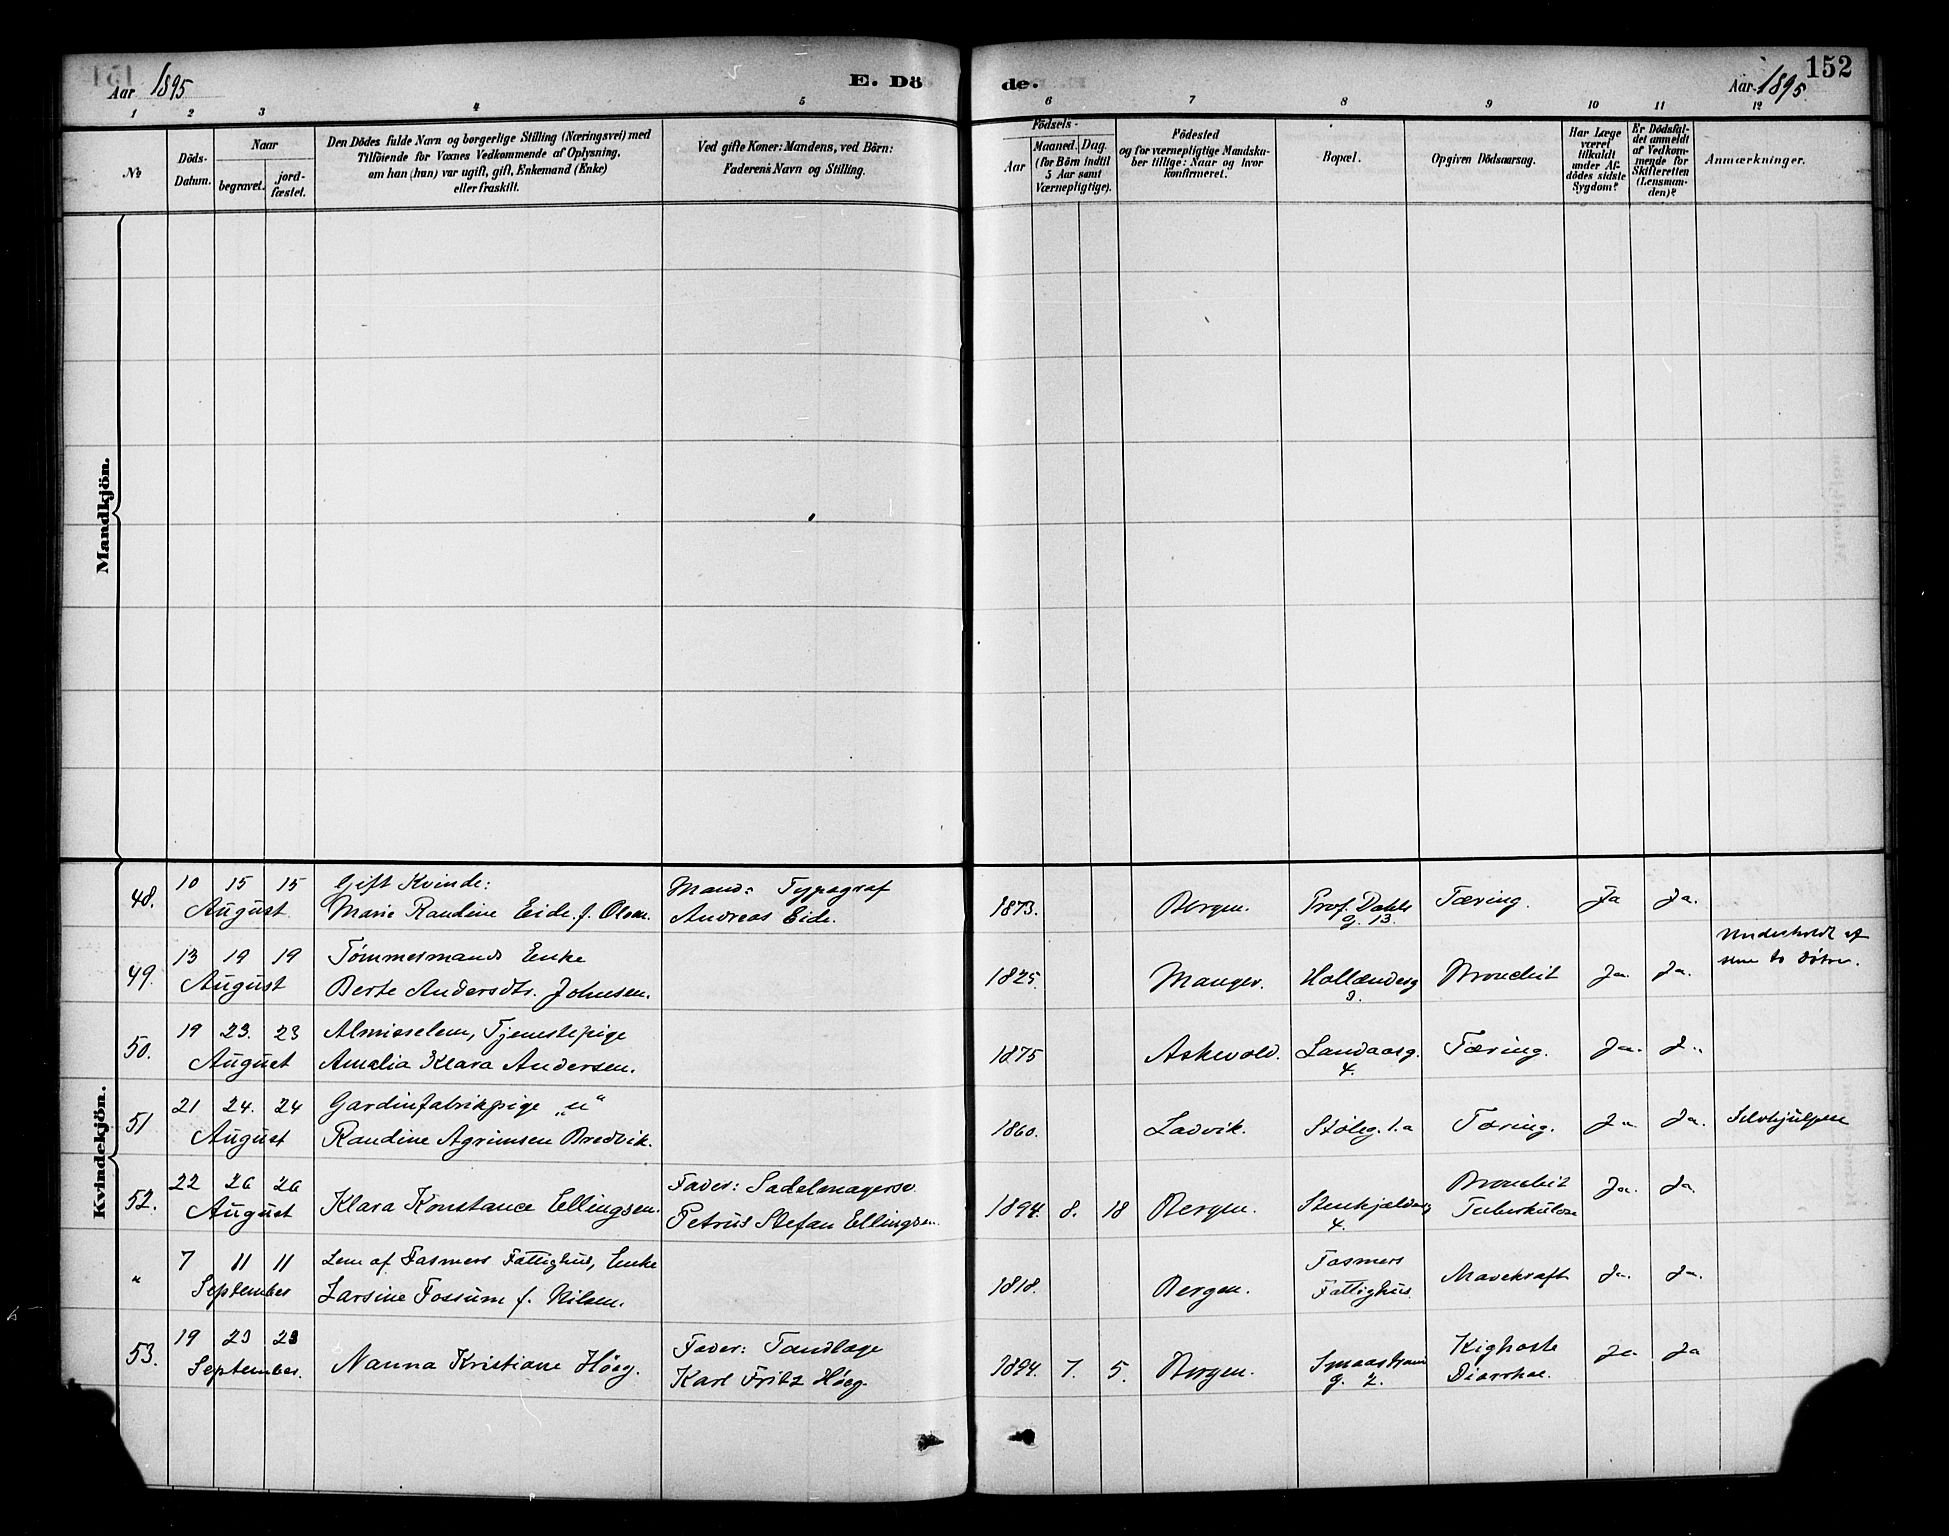 Aar 1895
E. Dö
de.
Aar 1895
152
1 2 3 4 5 6 7 8 9 10 11 12
№
Döds-
Datum.
Naar
begravet.
jord-
fæstet.
Den Dödes fulde Navn og borgerlige Stilling (Næringsvei) med
Tilföiende for Voxnes Vedkommende af Oplysning,
om han (hun) var ugift, gift, Enkemand (Enke)
eller fraskilt.
Ved gifte Koner: Mandens, ved Börn:
Faderens Navn og Stilling.
Födsels-
Aar
Maaned. Dag.
(for Börn indtil
5 Aar samt
Værnepligtige).
Födested
og for værnepligtige Mandska-
ber tillige: Naar og hvor
konfirmeret.
Bopæl.
Opgiven Dödsaarsag.
Har Læge
været
tilkaldt
under Af-
dödes sidste
Sygdom?
Er Dödsfal-
det anmeldt
af Vedkom-
mende for
Skifteretten
(Lensman-
den)?
Anmærkninger.
Mandkjön.
Kvindekjön.
48. 10 15 15 August
Gift Kvinde:
Marie Randine Eide f. Olsen.
Mand: Typograf
Andreas Eide.
1873. Bergen. Prof. Dahls
g. 13.
Tæring. Ja Ja.
49. 13 19 19 August
Tømmermands Enke
Berte Andersdtr. Johnsen.
1825. Manger. Hollenderg
9.
Bronchit Ja. Ja.
Underholdt af
sine to Døtre.
50. 19 23. 23 August
Almisselem, Tjenestepige
Amalia Klara Andersen.
1875 Askvold. Landaasg.
4.
Tæring. Ja. J..
51 21 24. 24 August
Gardinfabrikpige „u“
Randine Agrimsen Bredvik.
1860. Ladvik. Stöleg. 1.a Tæring. Ja Ja. Selvhjulpen
52. 22 26 26 August
Klara Konstance Ellingsen.
Fader: Sadelmagersv.
Petrus Stefan Ellingsen.
1894. 8. 18 Bergen.
4.
Bronchit
Tuberkulose
Ja. Ja.
„ 7 11 11 September
Lem af Fasmers Fattighus, Enke
Larsine Fossum f. Nilsen.
1818. Bergen. Fasmers
Fattighus.
Mavekræft Ja. Ja.
53. 19 23 23 September.
Nanna Kristiane Höeg.
Fader: Tandlæge
Karl Fritz Höeg.
1894. 7. 5. Bergen.
g. 2.
Kighoste
Diarrhoe.
Ja Ja